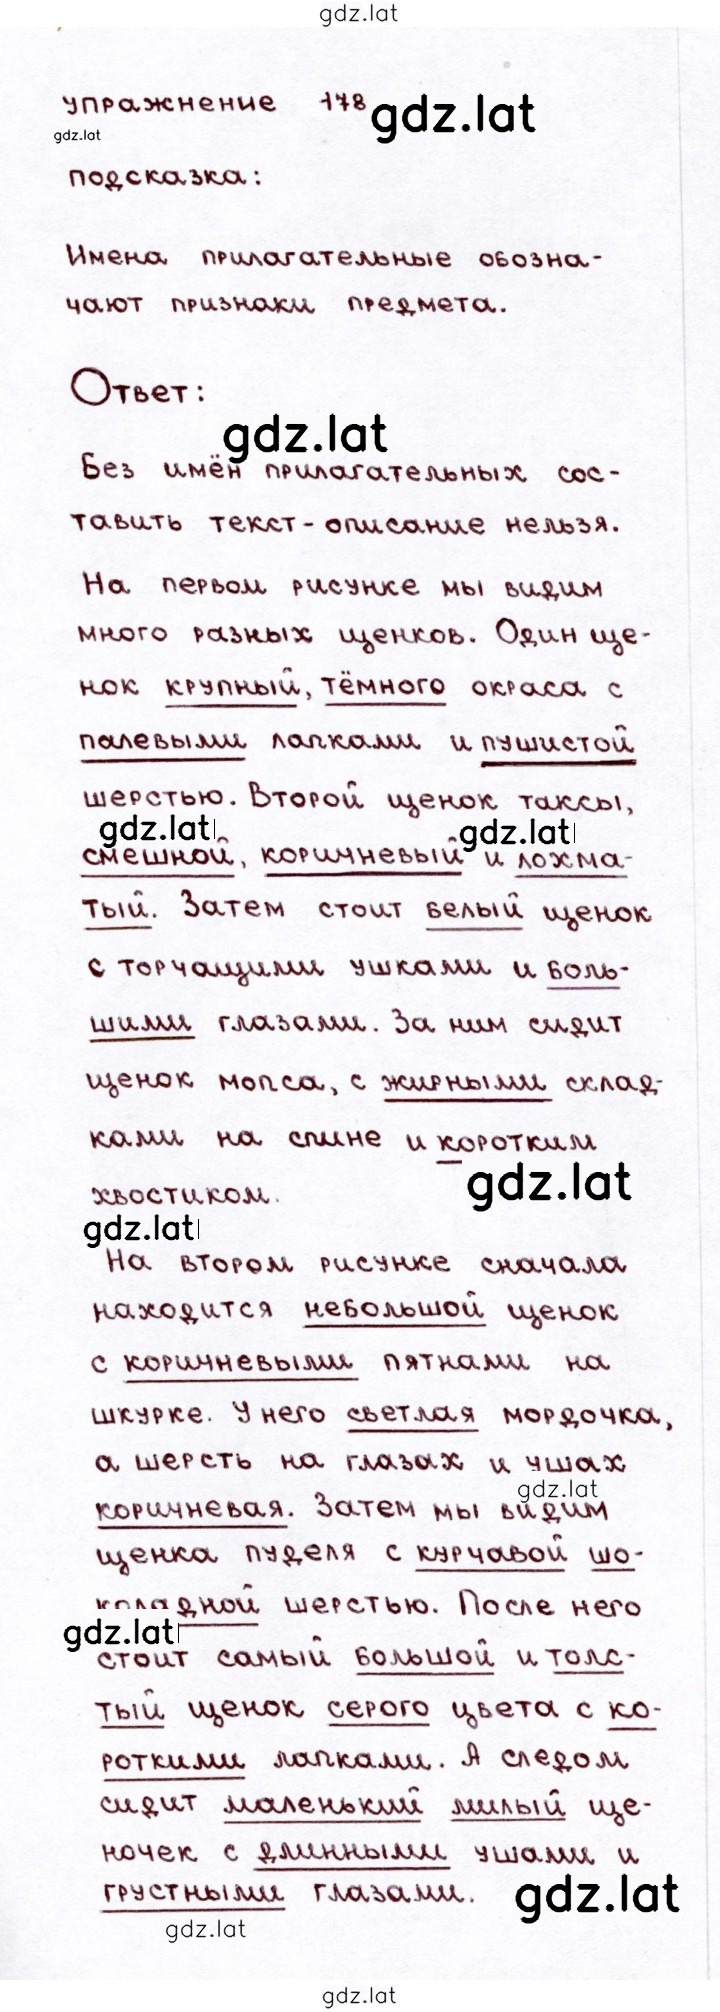 gdz.lat
упражнение 178
gdz.lat
gdz.lat
подсказка:
Имена прилагательные обозна-
чают признаки предмета.
Ответ:
gdz.lat
Без имён прилагательных сос-
тавить текст-описание нельзя.
На первом рисунке мы видим
много разных щенков. Один ще-
нок крупный, тёмного окраса с
палевыми лапками и пушистой
шерстью. Второй щенок таксы,
gdz.lat gdz.lat
смешной, коричневый и лохма-
тый. Затем стоит белый щенок
с торчащими ушками и боль-
шими глазами. За ним сидит
щенок мопса, с жирными склад-
ками на спине и коротким
gdz.lat
хвостиком.
gdz.lat
На втором рисунке сначала
находится небольшой щенок
с коричневыми пятнами на
шкурке. У него светлая мордочка,
а шерсть на глазах и ушах
gdz.lat
коричневая. Затем мы видим
щенка пуделя с курчавой шо-
коладной шерстью. После него
gdz.lat
стоит самый большой и толс-
тый щенок серого цвета с ко-
роткими лапками. А следом
сидит маленький милый ще-
ночек с длинными ушами и
грустными глазами. gdz.lat
gdz.lat
gdz.lat